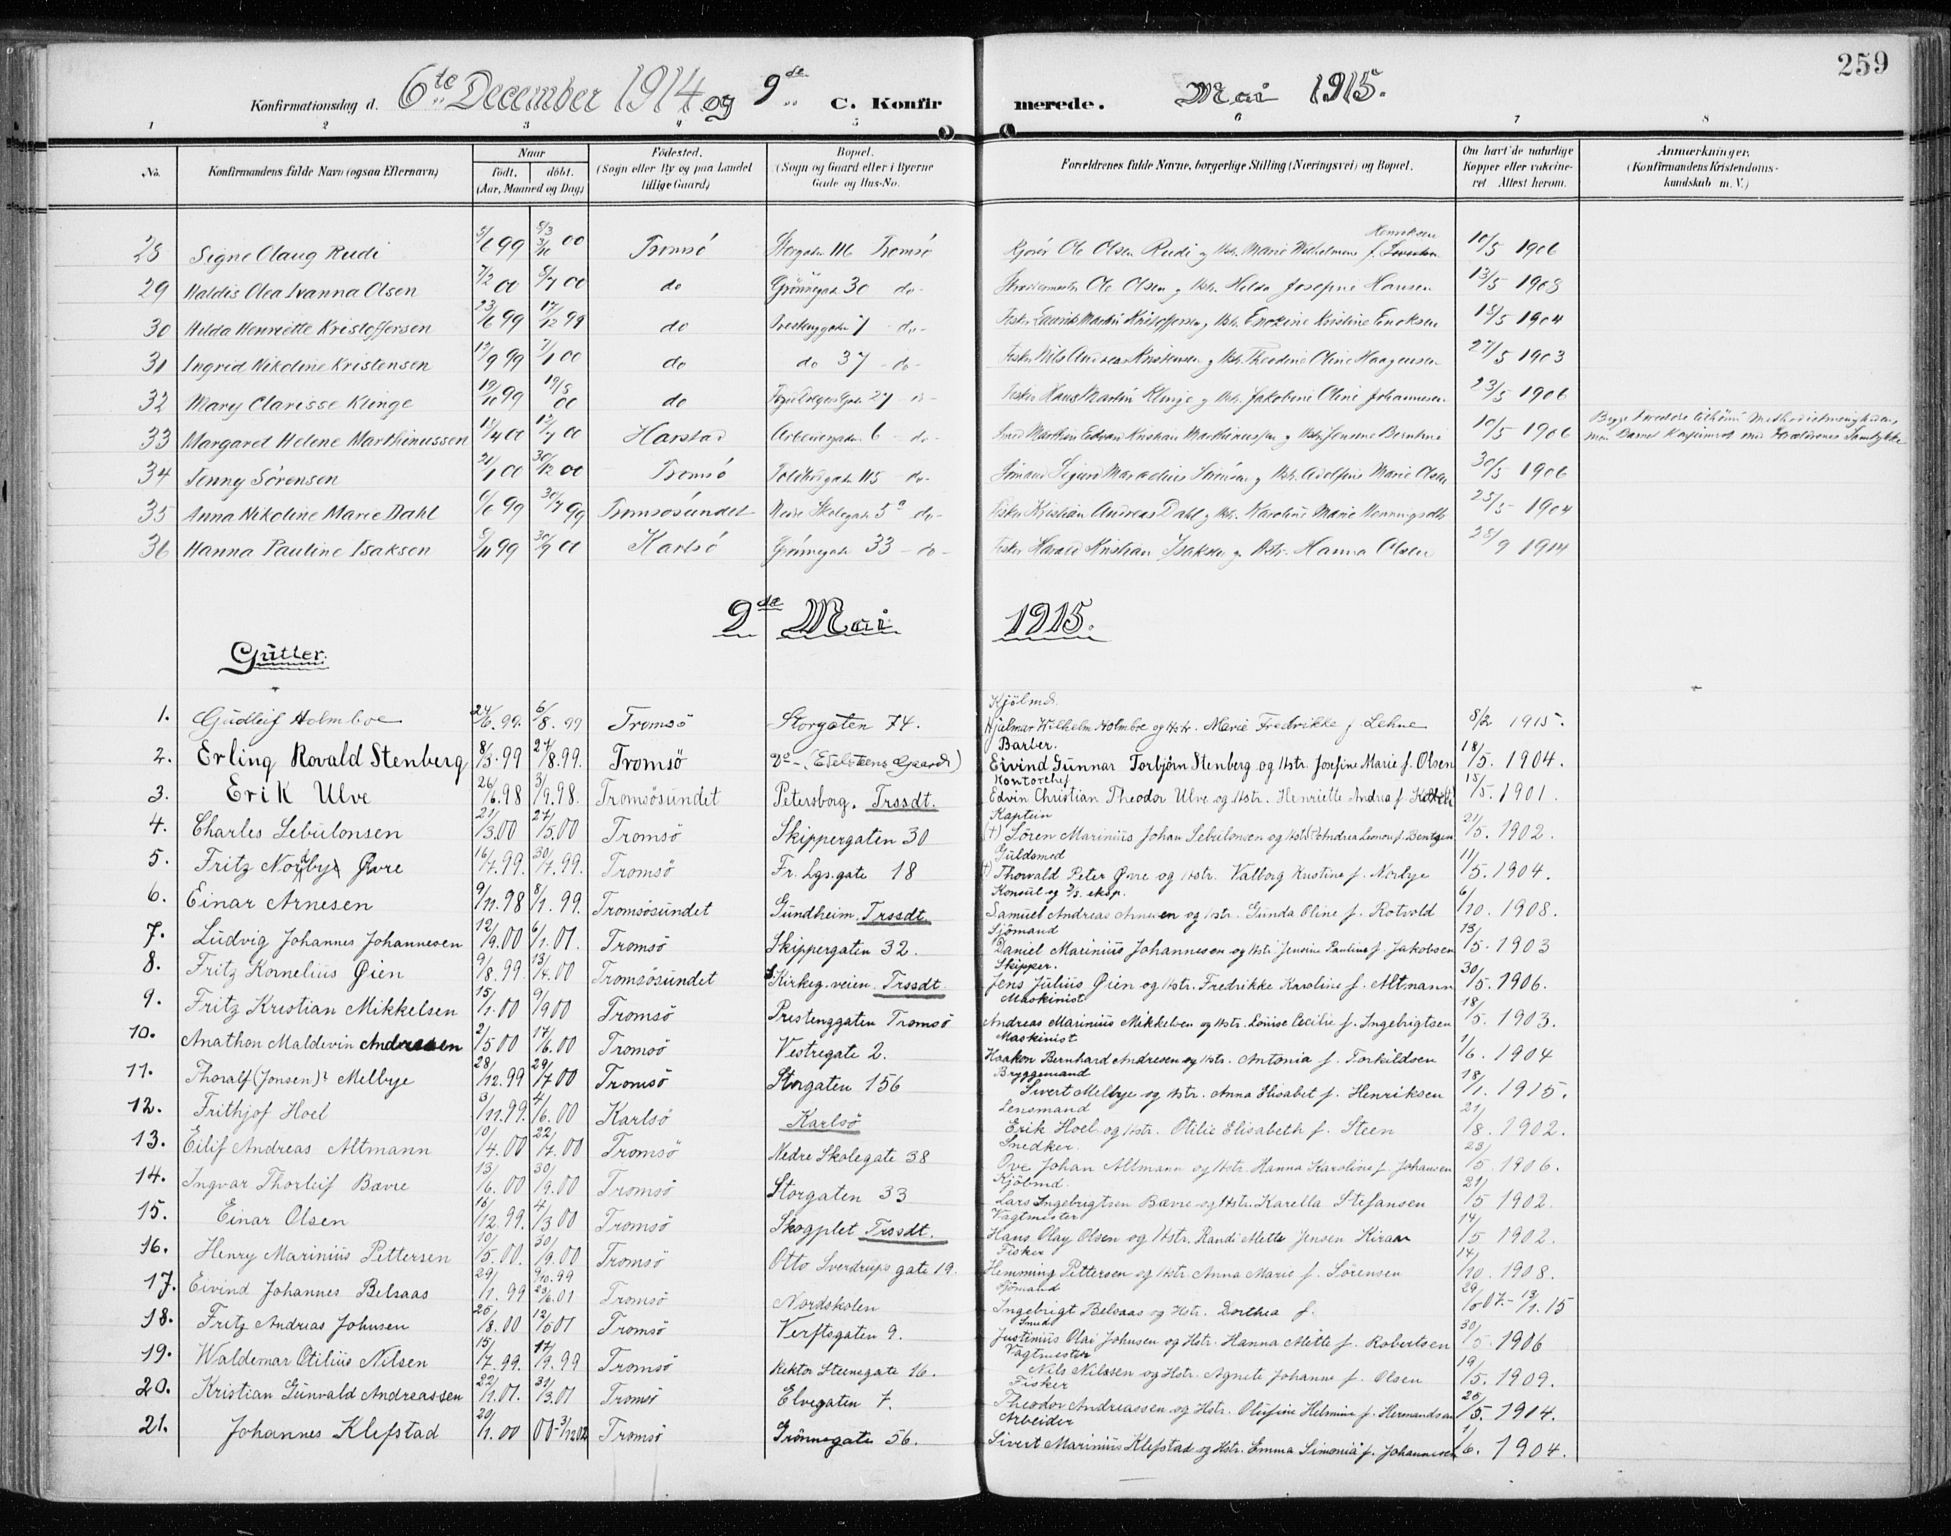 259
Konfirmationsdag d. 6te December 1914 og 9de C. Konfirmerede. Mai 1915.
1 2 3 4 5 6 7 8
No. Konfirmandens fulde Navn (ogsaa Efternavn) Naar født. døbt. (Aar, Maaned og Dag) Fødested. (Sogn eller By og paa Landet tillige Gaard) Bopæl. (Sogn og Gaard eller i Byerne Gade og Hus-No. Forældrenes fulde Navne, borgerlige Stilling (Næringsvei) og Bopæl. Om havt de naturlige Kopper eller vaccineret Attest herom. Anmærkninger. (Konfirmandens Kristendomskundskab m. V.)
Henriksen
28 Signe Olaug Rudi 5/6 99 Tromsö Storgaten 116 Tromsö Ole Olsen Rudi og Hstr. Marie Wilhelmine f. 10/5 1906
29 Haldis Olea Ivanna Olsen 7/2 00 8/7 00 do Grönnegate 30 do- Ole Olsen og Hstr. Helda Josefine Hansen 13/5 1903
30 Hilda Henriette Kristoffersen 23/6 99 17/12 99 do do- Fisker Laurits Martin Kristoffersen og Hstr. Enokine Kristine Enoksen 18/5 1904
31 Ingrid Nikoline Kristensen 12/9 99 7/1 00 do do 37 - do- Fisker Nils Andreas Kristensen og Hstr. Theodine Oline Haagensen 27/5 1903
32 Mary Clarisse Klinge 19/10 99 19/8 00 do Fisker Hans Martin Klinge og Hstr. Jakobine Oline Johannesen 23/5 1906
33 Margaret Helene Marthinussen 12/4 00 12/7 00 Harstad Arbeidergaten 6 - do- Smed Marthin Edvan Kristian Marthinussen og Hstr. Jensine Berntine 10/5 1906 Begge Forældre tilhöre Methodistmenigheden,
men Barnet konfirmeret med Forældrenes Samtykke
34 Jenny Sörensen 21/1 00 30/12 00 Tromsö 115 - do- Sjömand Sigurd Sörensen og Hstr. Adolfine Marie Olsen 30/5 1906
35 Anna Nikoline Marie Dahl 6/6 99 30/7 99 Tromsösundet Nedre Skolegate 5a - do- Fisker Kristian Andreas Dahl og Hstr. Karoline Marie Henningsdtr 25/5 - 1904
36 Hanna Pauline Isaksen 5/11 99 30/9 00 Karlsö Grönnegate 33 - do- Fisker Harald Kristian Isaksen og Hstr. Hanna Olsen 25/9 1914
9de Mai 1915.
Gutter.
Kjölmd.
1. Gudleif Holmboe 24/6. 99. 6/8. 99 Tromsö Storgaten 74. Hjalmar Wilhelm Holmboe og Hstr. Marie Fredrikke f. Lehne 8/2 1915.
Barber.
2. Erling Rovald Stenberg 8/3. 99 27/8. 99. Tromsö Do - (Edelsteens Gaard) Eivind Gunnar Torbjörn Stenberg og Hstr. Josefine Marie f. Olsen 18/5. 1904.
Kontorchef
3. Erik Ulve 26/6. 98 3/9. 98. Tromsösundet Petersborg. Trssdt. Edvin Christian Theodor Ulve og Hstr. Henriette Andrea f. 15/5. 1901.
Kaptein
4. Charles Sebulonsen 21/3. 00 27/5. 00 Tromsö Skippergaten 30 (†) Sören Marinius Johan Sebulonsen og Hstr. Andrea Leonore f. Bentzen 21/5. 1902.
Guldsmed
5. Fritz Nordbye Øvre 16/7. 99. 30/7. 99. Tromsö Fr. Lgs. gate 18 (†) Thorvald Peter Øvre og Hstr. Valborg Kristine f. Norbye 11/5. 1904.
Konsul og D/s. eksp.
6. Einar Arnesen 9/11. 98 8/1. 99. Tromsösundet Gundheim. Trssdt. Samuel Andreas Arnesen og Hstr. Gunda Oline f. Rotvold 6/10. 1908.
Sjömand
7. Ludvig Johannes Johannesen 12/9. 00 6/1. 01. Tromsö Skippergaten 32. Daniel Marinius Johannesen og Hstr. Jensine Pauline f. Jakobsen 13/5. 1903
Skipper.
8. Fritz Kornelius Øien 9/8. 99. 13/4. 00 Tromsösundet Kirkeg. veien. Trssdt. Jens Julius Øien og Hstr. Fredrikke Karoline f. Altmann 30/5. 1906.
Maskinist
9. Fritz Kristian Mikkelsen 15/1. 00 9/9 00 Tromsö Prestenggaten Tromsö Andreas Marinius Mikkelsen og Hstr. Louise Cecilie f. Ingebrigtsen 18/5. 1903.
Maskinist
10. Anathon Maldevin Andresen 2/5 00 17/6. 00 Tromsö Vestregate 2. Haakon Bernhard Andresen og Hstr. Antonia f. Torkildsen 1/6. 1904
Bryggemand
11. Thoralf (Jonsen) Melbye 28/12. 99 29/7 00 Tromsö Storgaten 156 Sivert Melbye og Hstr. Anna Elisabet f. Henriksen 18/1. 1915.
Lensmand
12. Frithjof Hoel 3/11. 99. 4/6. 00 Karlsö Karlsö Erik Hoel og Hstr. Otilie Elisabeth f. Steen 21/8. 1902.
Snedker.
13. Eilif Andreas Altmann 10/4. 00 22/7. 00 Tromsö Nedre Skolegate 38 Ove Johan Altmann og Hstr. Hanna Karoline f. Johansen 23/5. 1906.
Kjölmd.
14. Ingvar Thorleif Bævre 13/6. 00 30/9. 00 Tromsö Storgaten 33 Lars Ingebrigtsen Bævre og Hstr. Karella Stefansen 21/5 1902.
Vagtmester
15. Einar Olsen 16/12. 99. 4/3 00 Tromsö Skogplet Trssdt. Hans Olay Olsen og Hstr. Randi Mette Jensen Kiraar 14/5 1902.
Fisker
16. Henry Marinius Pettersen 10/5. 00. 30/9. 00 Tromsö Otto Sverdrups gate 19. Hemming Pettersen og Hstr. Anna Marie f. Sörensen 14/10. 1908.
Sjömand
17. Eivind Johannes Belsaas 29/1. 99 23/6. 01 Tromsö Nordskolen Ingebrigt Belsaas og Hstr. Dorthea f.
Smed
18. Fritz Andreas Johnsen 26/8. 00 12/5 01 Tromsö Verftsgaten 9. Justinius Olai Johnsen og Hstr. Hanna Mette f. Robertsen 30/5 1906
Vagtmester
19. Waldemar Otilius Nilsen 15/7. 99. 17/9. 99 Tromsö Rektor Steensgate 16. Nils Nilssen og Hstr. Agnete Johanne f. Olsen 19/5. 1909.
Fisker
20. Kristian Gunvald Andreassen 22/1. 01. 31/3. 01 Tromsö Elvegaten 7. Theodor Andreassen og Hstr. Olufine Helmine f. Hermandsen 26/5. 1904.
Arbeider
21. Johannes Klefstad 20/1. 00 Tromsö Grönnegate 56. Sivert Marinius Klefstad og Hstr. Emma Simonia f. Johannesen 1/6. 1904.